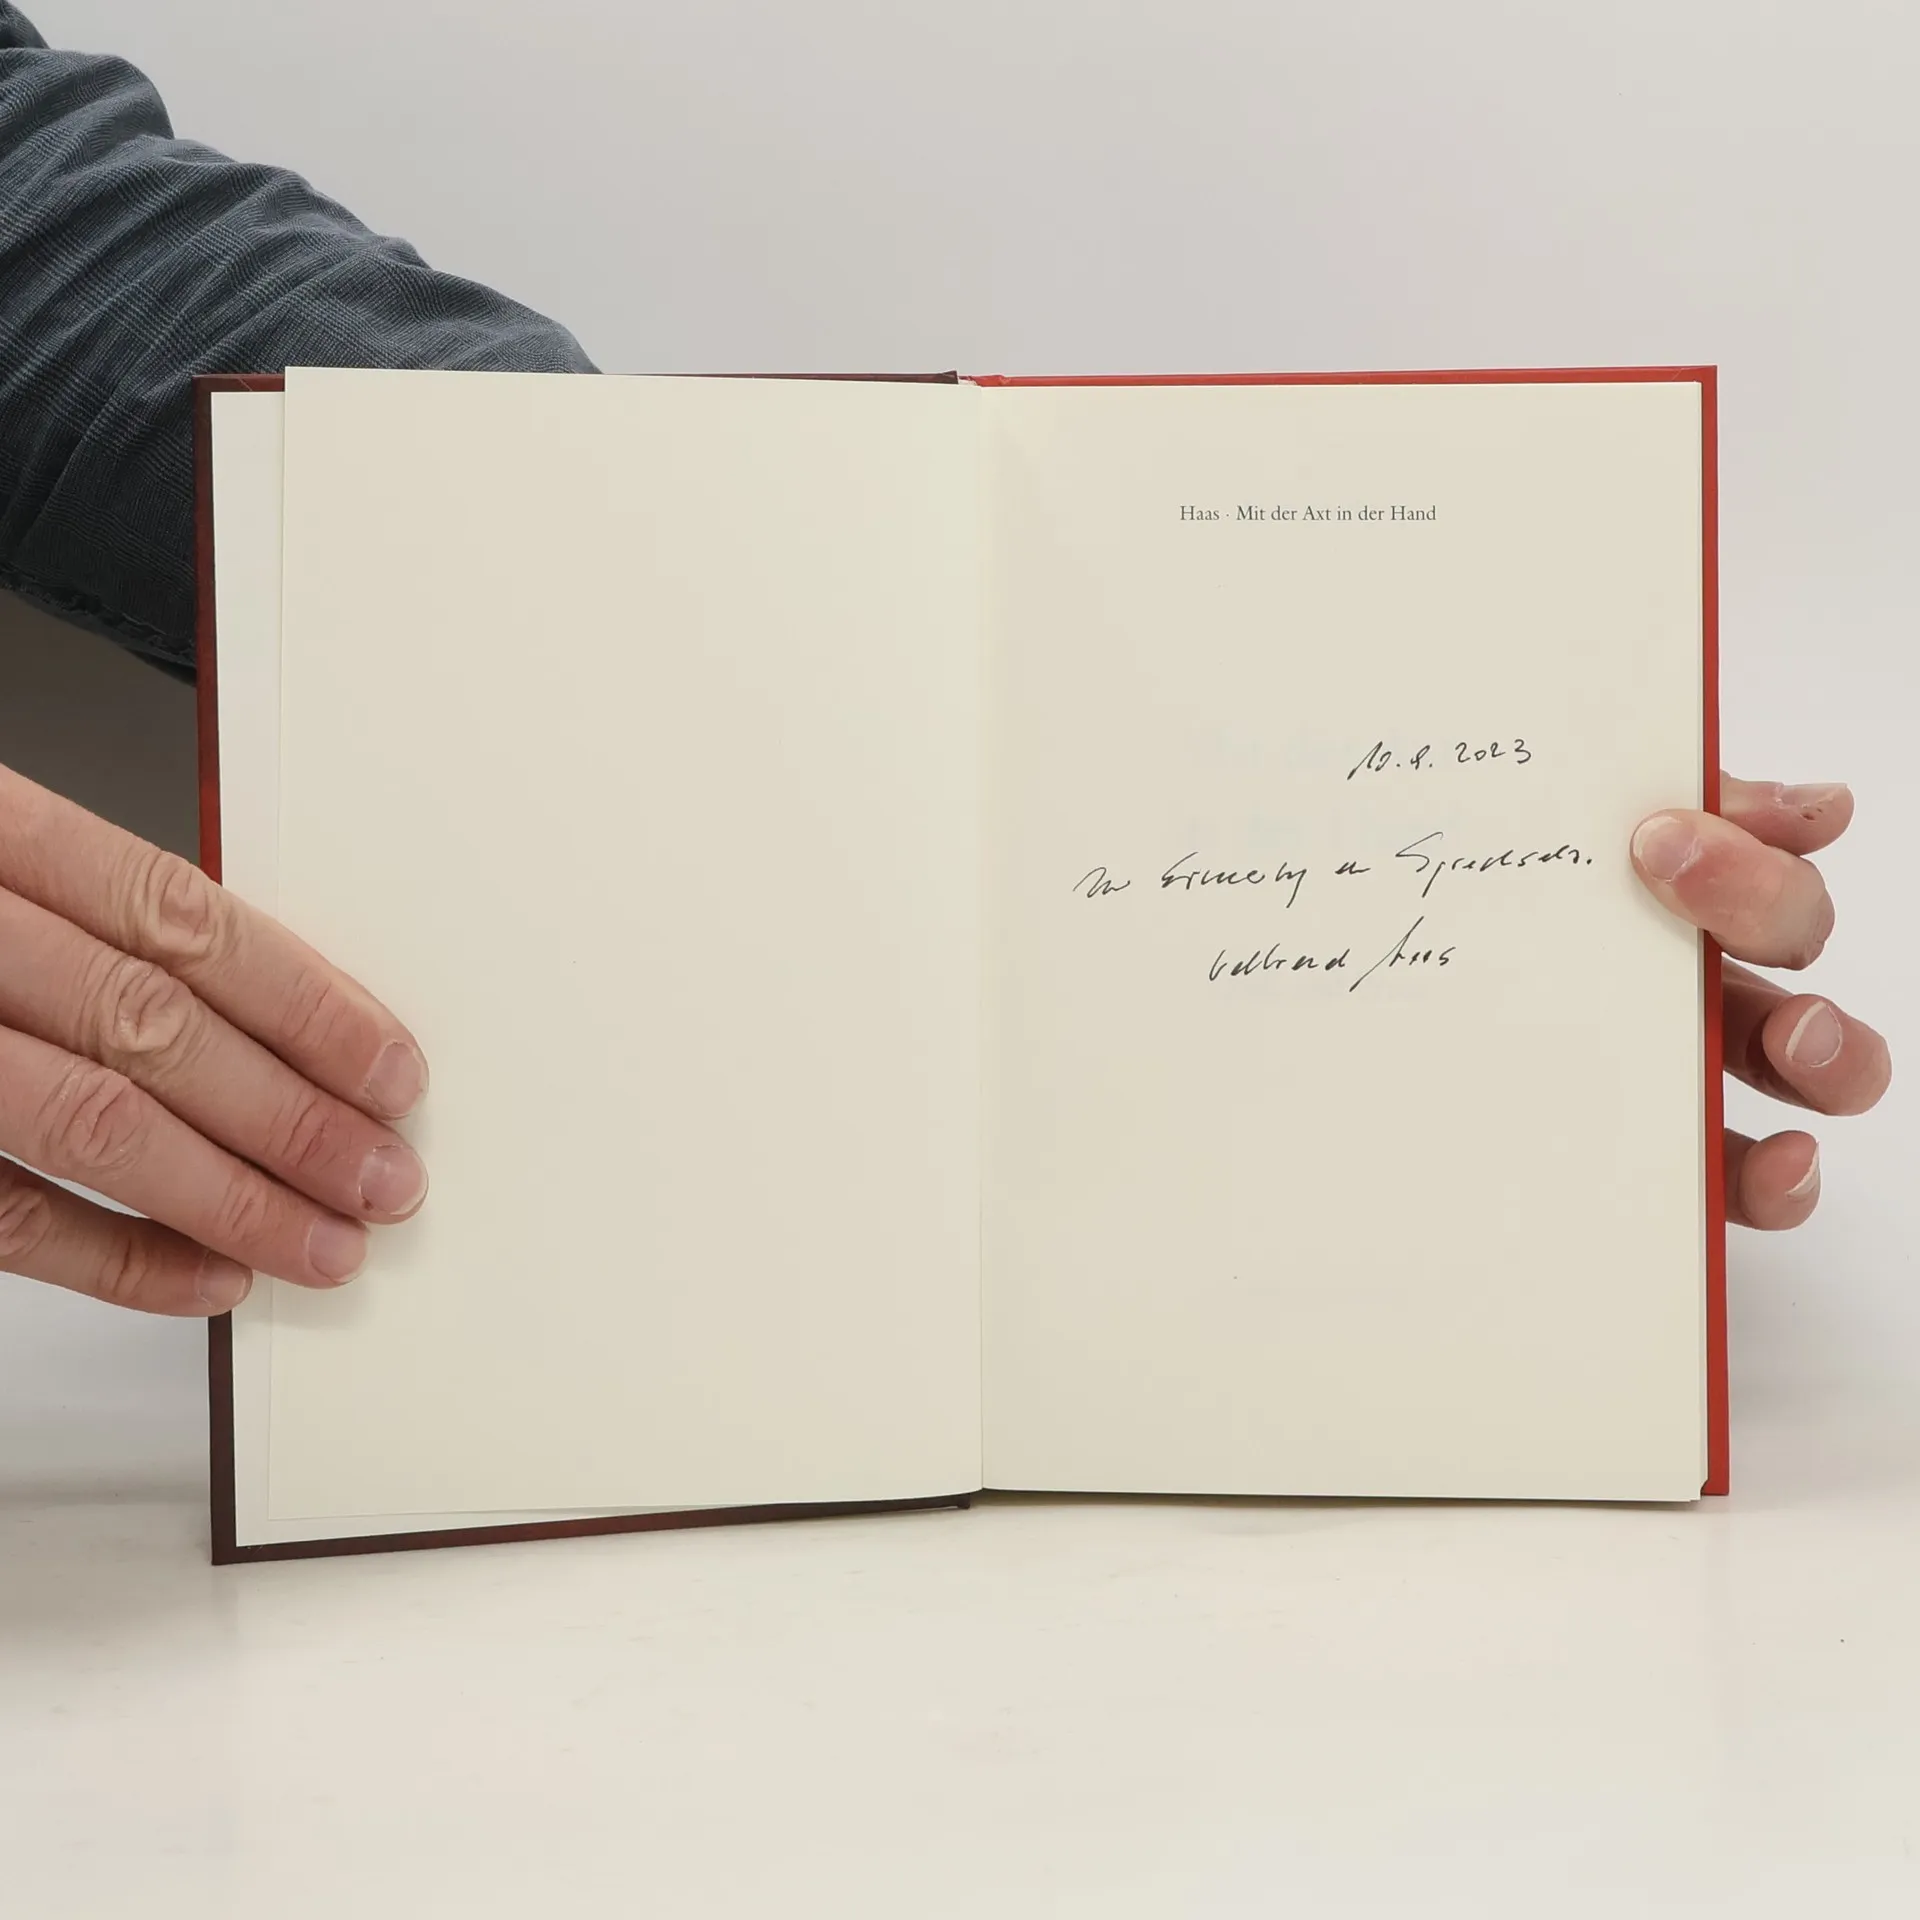 Haas · Mit der Axt in der Hand
10.8.2023
Zur Erinnerung an
Haas